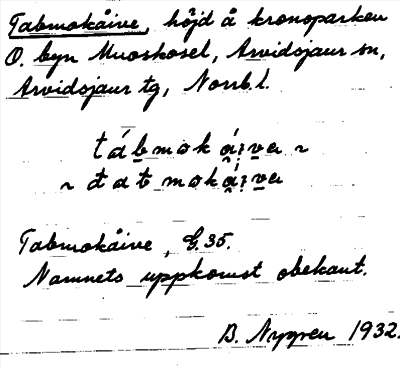 Tabmokåive, höjd å kronoparken
O. byn Muoskosel, Arvidsjaur sn,
Arvidsjaur tg, Norrb. l.
Tabmokåive, G.35.
Namnets uppkomst obekant.
B. Nygren 1932.